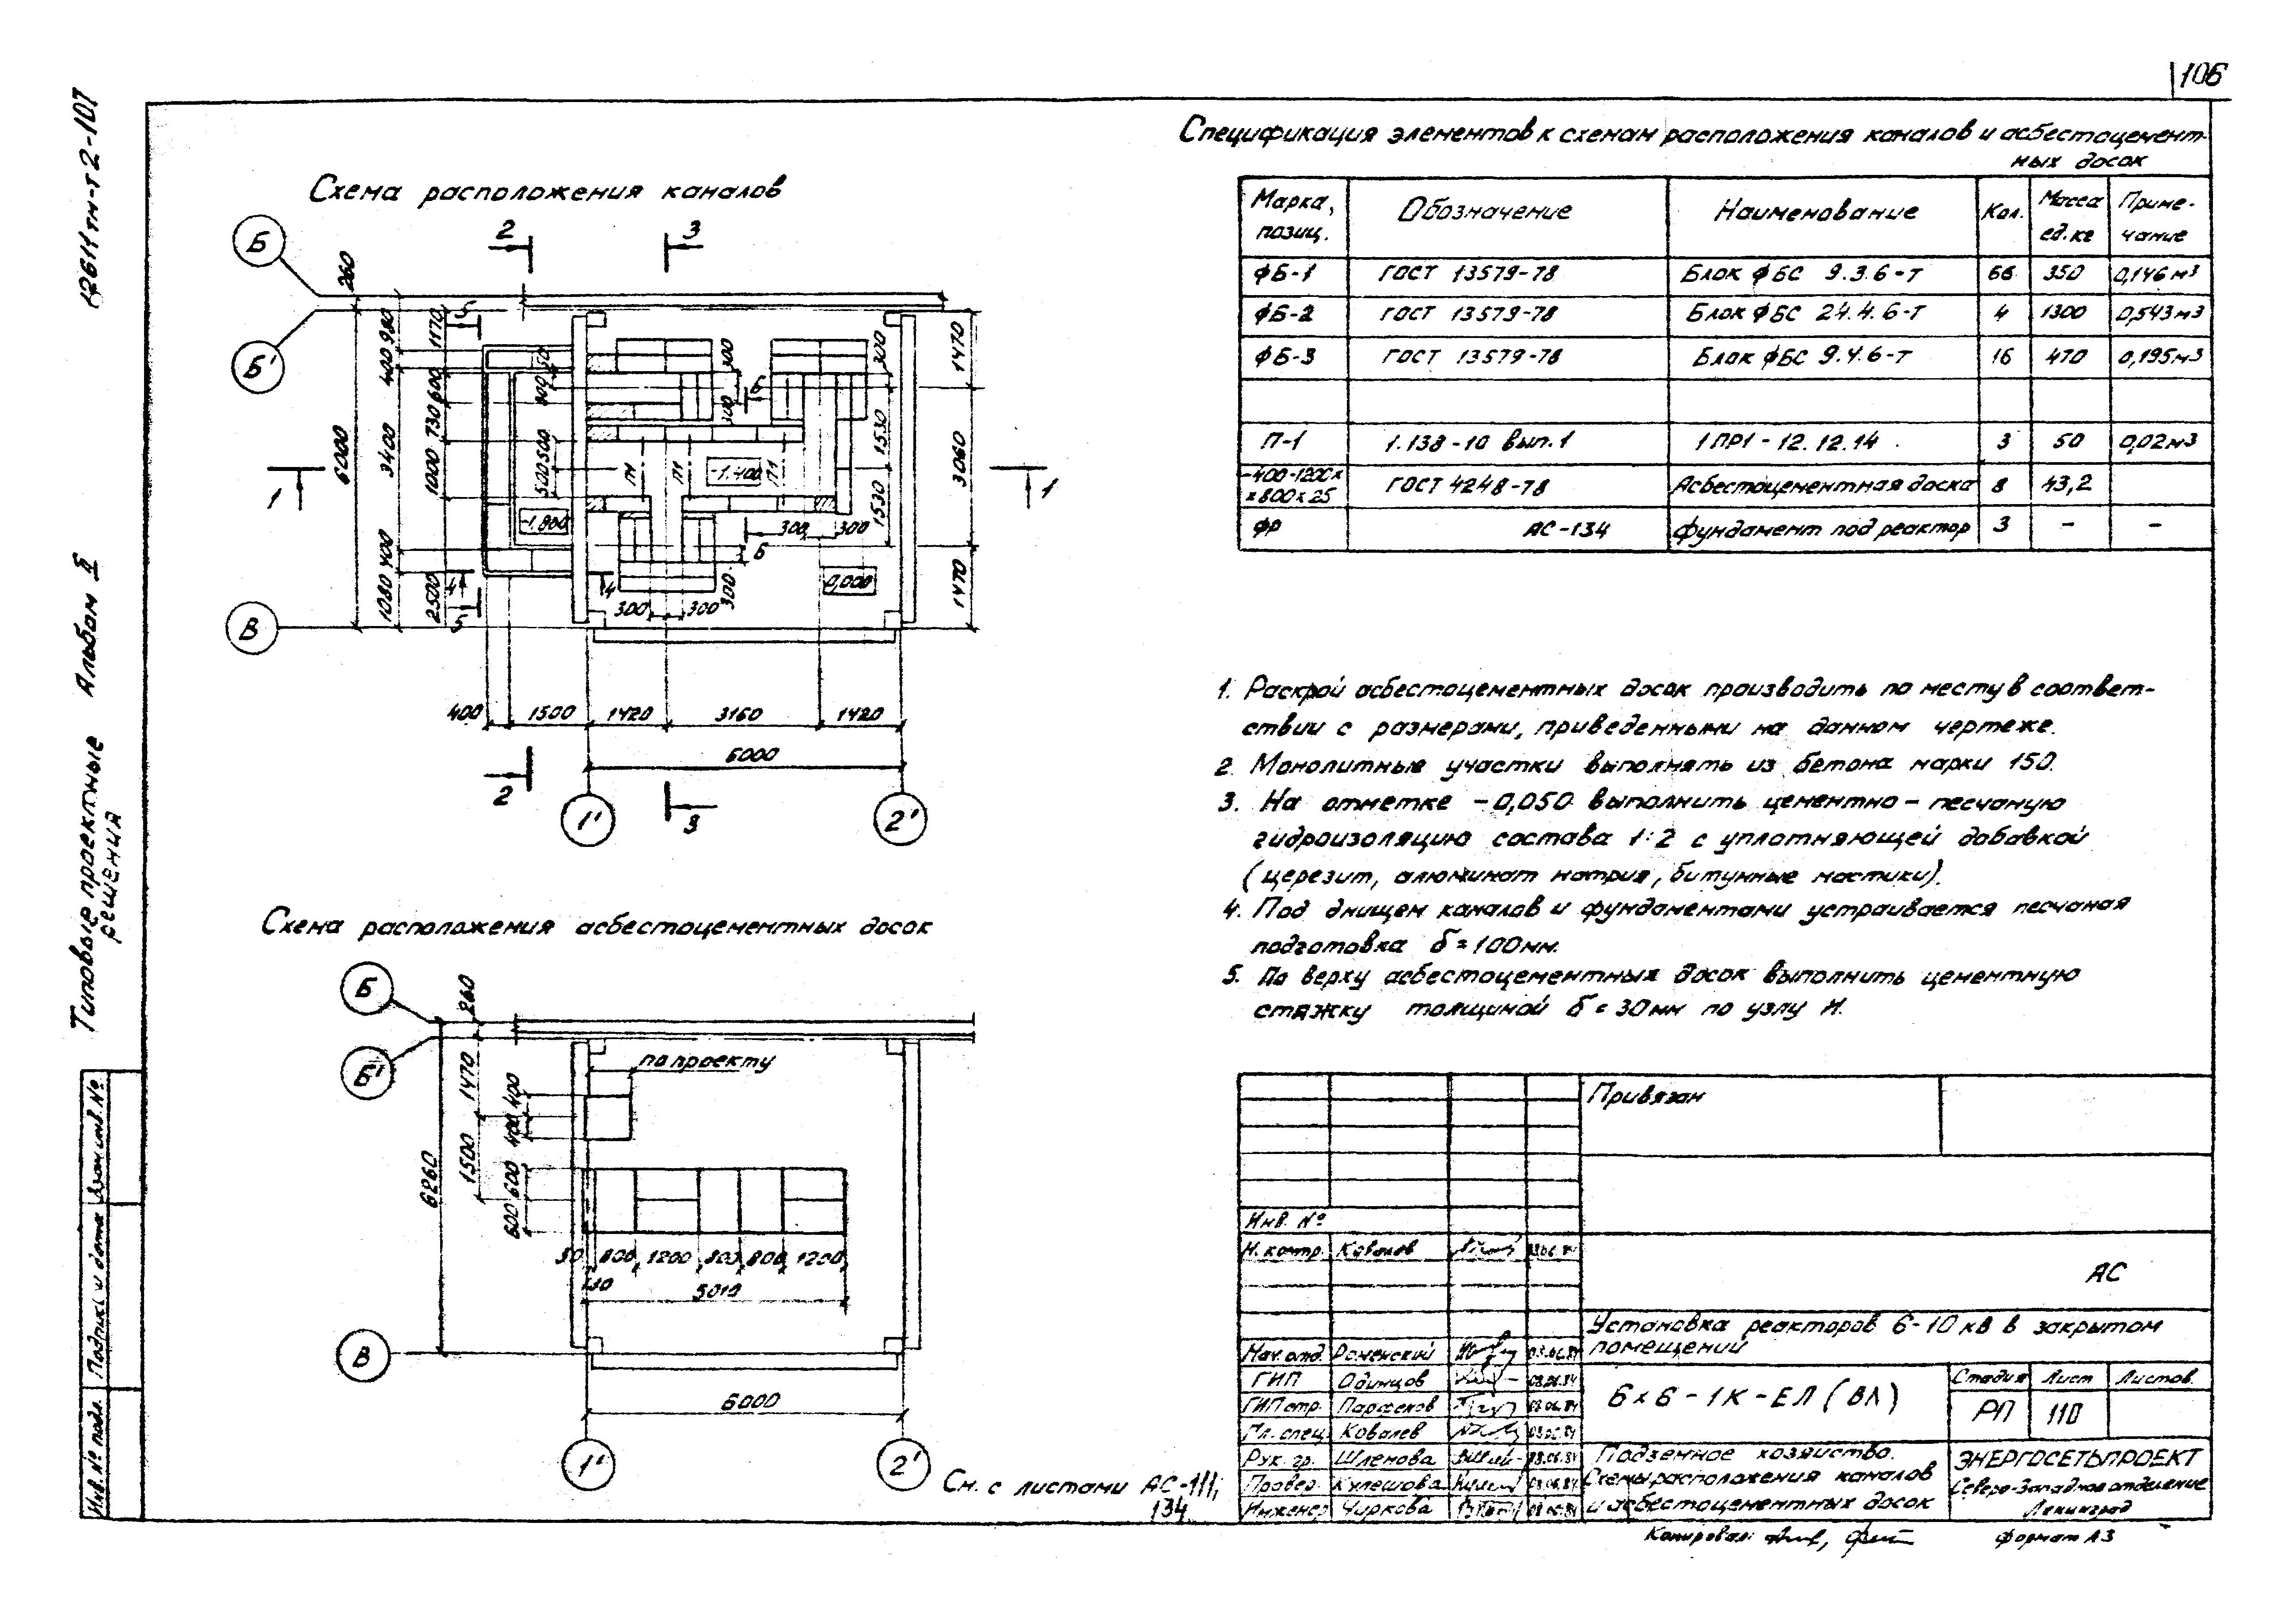 106
12611тм-т2-107
Типовые проектные решения Альбом II
Схема расположения каналов
Б
Б'
В
2
3
260
6000
980
400
3400
400
1080
1170
600
730
1000
2500
5
5
4
4
1
1
300
300
300
Б
Б
500
500
П1
П1
П1
-1.400
-1.800
0,000
300
300
300
300
300
1530
1530
1470
3060
1470
400
1500
1420
3160
1420
6000
2
3
1'
2'
Схема расположения асбестоцементных досок
Б
Б'
В
260
1470
1500
6260
400
400
600
600
по проекту
800
1200
800
1200
5010
6000
1'
2'
См. с листами АС-111,
134
Спецификация элементов к схемам расположения каналов и асбестоцемент-
ных досок
Марка, позиц. Обозначение Наименование Кол. Масса ед.кг Приме-чание
ФБ-1 ГОСТ 13579-78 Блок ФБС 9.3.6-т 66 350 0,146м3
ФБ-2 ГОСТ 13579-78 Блок ФБС 24.4.6-т 4 1300 0,543м3
ФБ-3 ГОСТ 13579-78 Блок ФБС 9.4.6-т 16 470 0,195м3
П-1 1.138-10 вып.1 1ПР1-12.12.14 3 50 0,02м3
-400-1200×
×800×25 ГОСТ 4248-78 Асбестоцементная доска 8 43,2
ФР АС-134 Фундамент под реактор 3 - -
1. Раскрой асбестоцементных досок производить по месту в соответ-
ствии с размерами, приведенными на данном чертеже.
2. Монолитные участки выполнять из бетона марки 150.
3. На отметке -0,050 выполнить цементно-песчаную
гидроизоляцию состава 1:2 с уплотняющей добавкой
(церезит, алюминат натрия, битумные мастики).
4. Под днищем каналов и фундаментами устраивается песчаная
подготовка б=100мм.
5. По верху асбестоцементных досок выполнить цементную
стяжку толщиной б=30мм по узлу И.
Привязан
Инв. №
АС
Установка реакторов 6-10кв в закрытом
помещений
6×6-1К-ЕЛ(ВЛ)
Стадия Лист Листов.
РП 110
Подземное хозяйство.
Схемы расположения каналов
и асбестоцементных досок
ЭНЕРГОСЕТЬПРОЕКТ
Северо-Западное отделение
Ленинград
Н. контр. Ковалев
Нач. отд. Роменский
ГИП Одинцов 03.06.84
ГИП стр. Парфенов 03.06.84
Гл. спец. Ковалев
Рук. гр. Шленова
Провер. Кулешова 03.06.84
Инженер Чиркова
Копировал:
Формат А3
Взам инв.№
Подпись и дата
Инв.№ подл.